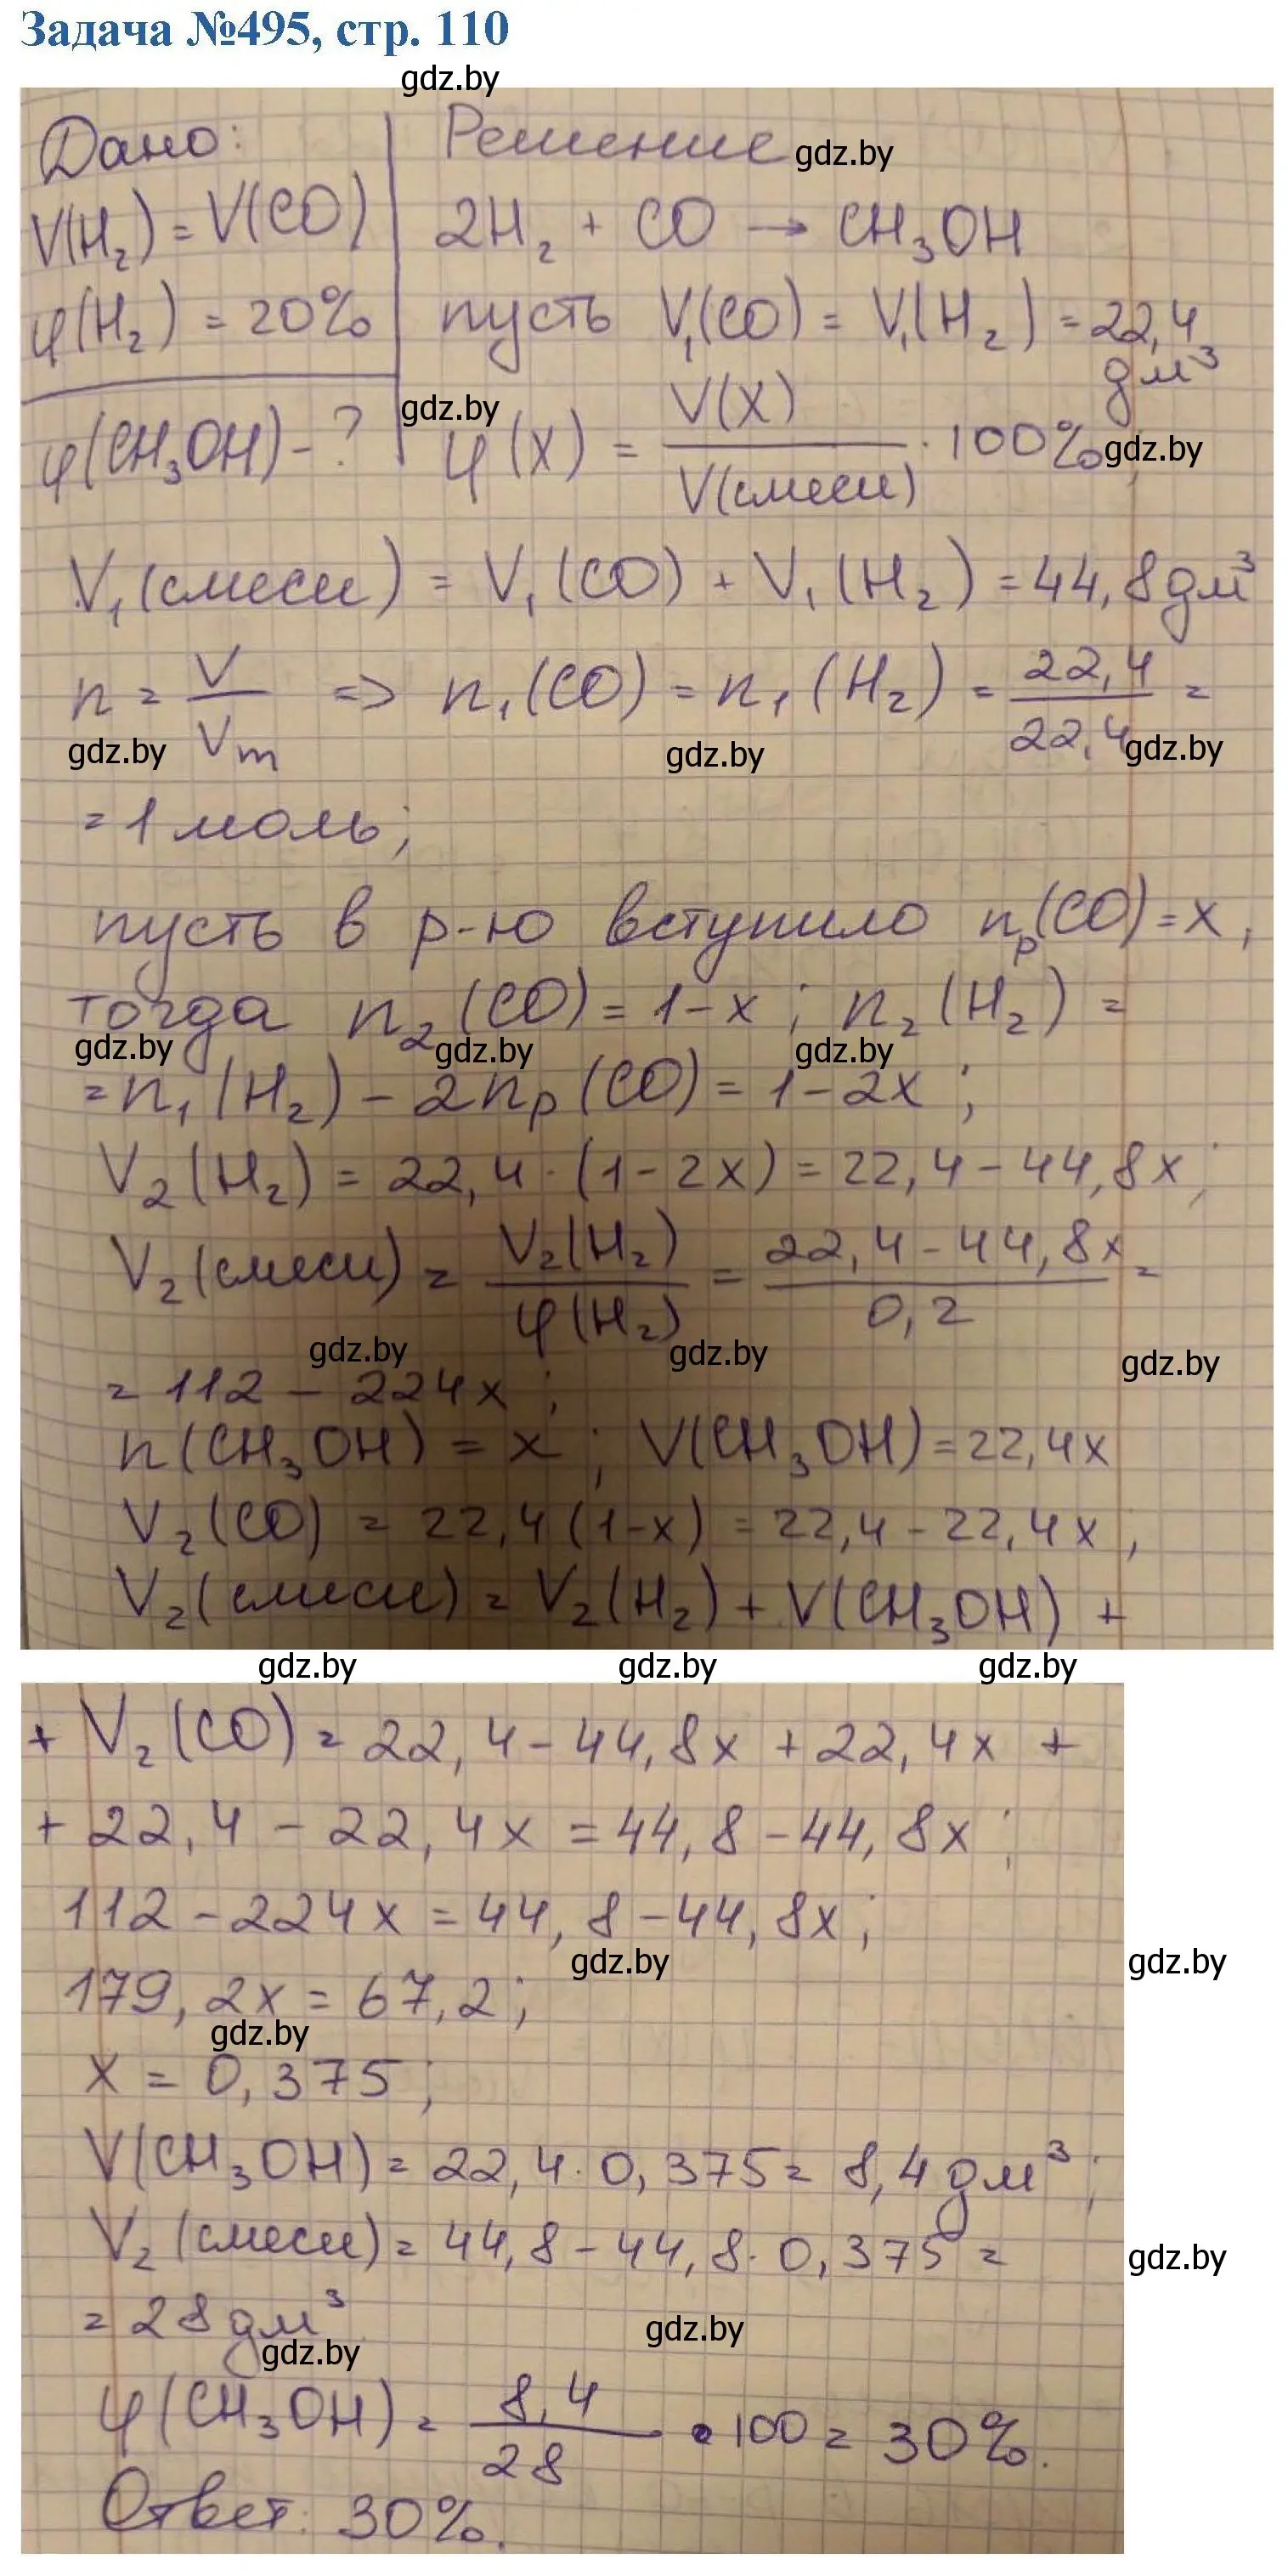 Задача №495, стр. 110
gdz.by
Дано: Решение gdz.by
V(H₂) = V(CO) 2H₂ + CO → CH₃OH
φ(H₂) = 20% пусть V₁(CO) = V₁(H₂) = 22,4 дм³
gdz.by
φ(CH₃OH) - ? φ(x) = V(x) / V(смеси) · 100%, gdz.by
V₁(смеси) = V₁(CO) + V₁(H₂) = 44,8 дм³
n = V / Vm => n₁(CO) = n₁(H₂) = 22,4 / 22,4 =
gdz.by gdz.by gdz.by
= 1 моль;
пусть в р-ю вступило nр(CO) = x,
тогда n₂(CO) = 1-x; n₂(H₂) =
gdz.by gdz.by gdz.by
= n₁(H₂) - 2nр(CO) = 1-2x;
V₂(H₂) = 22,4 · (1-2x) = 22,4 - 44,8x;
V₂(смеси) = V₂(H₂) / φ(H₂) = 22,4 - 44,8x / 0,2 =
gdz.by gdz.by gdz.by
= 112 - 224x;
n(CH₃OH) = x; V(CH₃OH) = 22,4x
V₂(CO) = 22,4(1-x) = 22,4 - 22,4x;
V₂(смеси) = V₂(H₂) + V(CH₃OH) +
gdz.by gdz.by gdz.by
+ V₂(CO) = 22,4 - 44,8x + 22,4x +
+ 22,4 - 22,4x = 44,8 - 44,8x;
112 - 224x = 44,8 - 44,8x;
gdz.by gdz.by
179,2x = 67,2;
gdz.by
x = 0,375;
V(CH₃OH) = 22,4 · 0,375 = 8,4 дм³;
V₂(смеси) = 44,8 - 44,8 · 0,375 =
gdz.by
= 28 дм³
gdz.by gdz.by
φ(CH₃OH) = 8,4 / 28 · 100 = 30%.
Ответ: 30%.